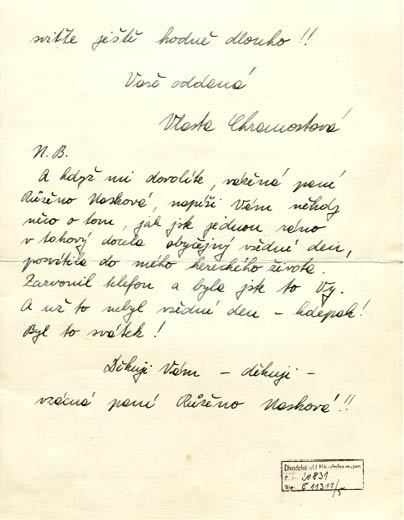 sviťte ještě hodně dlouho!!
Vaše oddaná
Vlasta Chramostová
N.B.
A když mi dovolíte, vážená paní
Růženo Nasková, napíši Vám někdy
něco o tom, jak jste jednou ráno
v takový docela obyčejný všední den,
posvítila do mého hereckého života.
Zazvonil telefon a byla jste to Vy.
A už to nebyl všední den – kdepak!
Byl to svátek!
Děkuji Vám – děkuji –
vzácná paní Růženo Nasková!!
Divadelní odd. Národního musea
20831
Č 11311/5